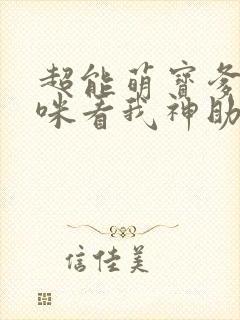 超能萌寶爹
咪看我神助
信佳美